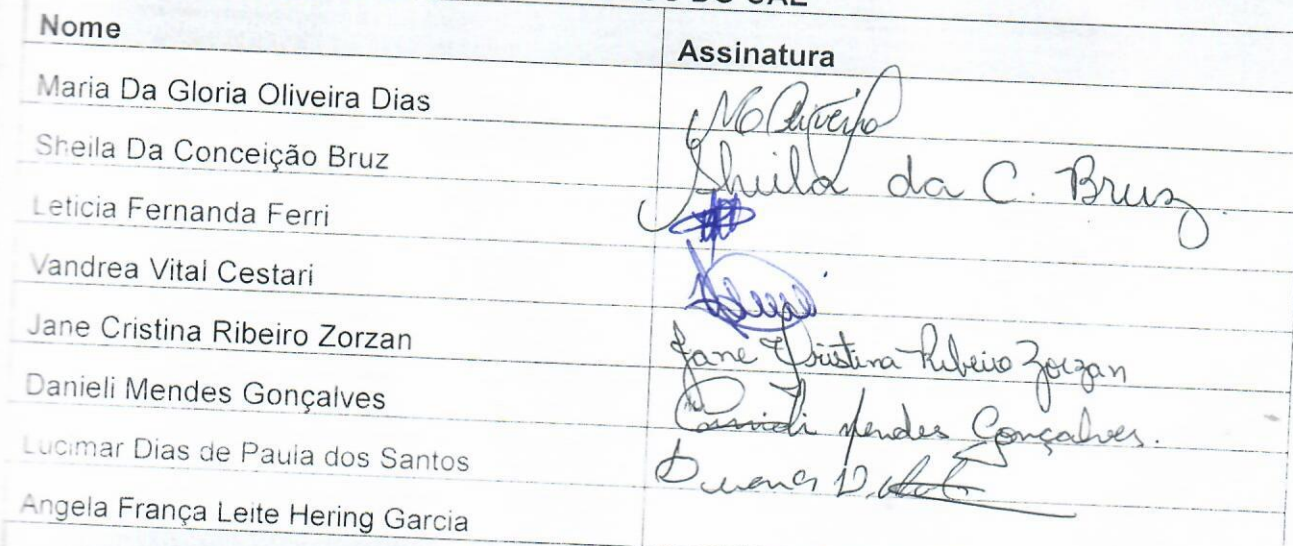 DO CAE
Nome Assinatura
Maria Da Gloria Oliveira Dias MG Oliveira
Sheila Da Conceição Bruz Sheila da C. Bruz.
Leticia Fernanda Ferri
Vandrea Vital Cestari
Jane Cristina Ribeiro Zorzan Jane Cristina Ribeiro Zorzan
Danieli Mendes Gonçalves Danieli Mendes Gonçalves.
Lucimar Dias de Paula dos Santos
Angela França Leite Hering Garcia